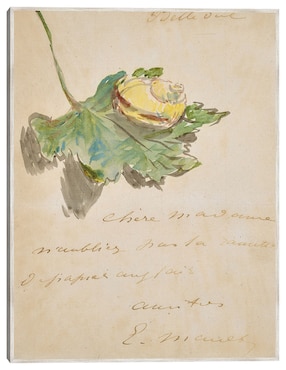 Bellevue
chère madame
n'oubliez pas la
d papier anglais
amitiés
E. Manet